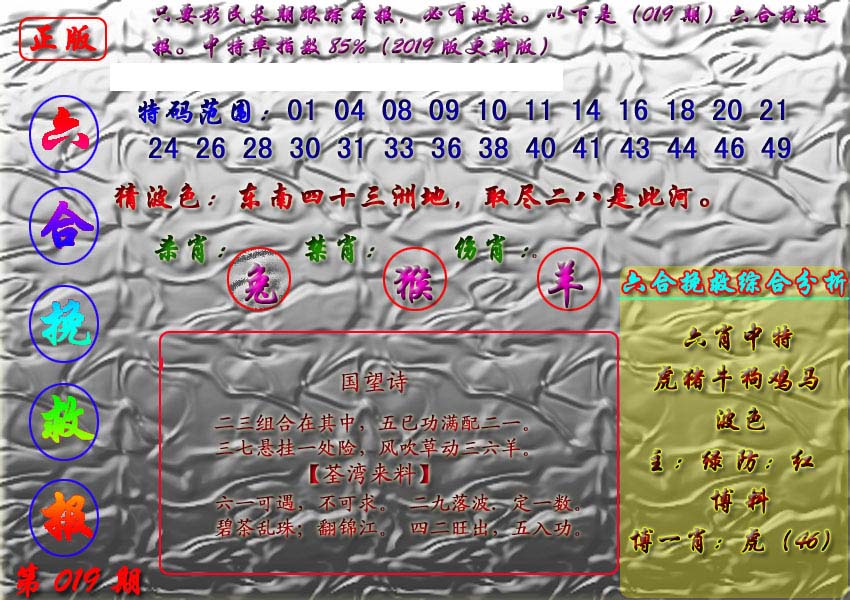 正版
只要彩民长期跟踪本报，必有收获。以下是（019期）六合挽救
报。中特率指数85%（2019版更新版）
六合挽救报
第019期
特码范围：01 04 08 09 10 11 14 16 18 20 21
24 26 28 30 31 33 36 38 40 41 43 44 46 49
猜波色：东南四十三洲地，取尽二八是此河。
杀肖：兔 禁肖：猴 伤肖：羊。
国望诗
二三组合在其中，五已功满配二一。
三七悬挂一处险，风吹草动三六羊。
【荃湾来料】
六一可遇，不可求。 二九落波．定一数。
碧茶乱珠；翻锦江。 四二旺出，五入功。
六合挽救综合分析
六肖中特
虎猪牛狗鸡马
波色
主：绿防：红
博料
博一肖：虎（46）